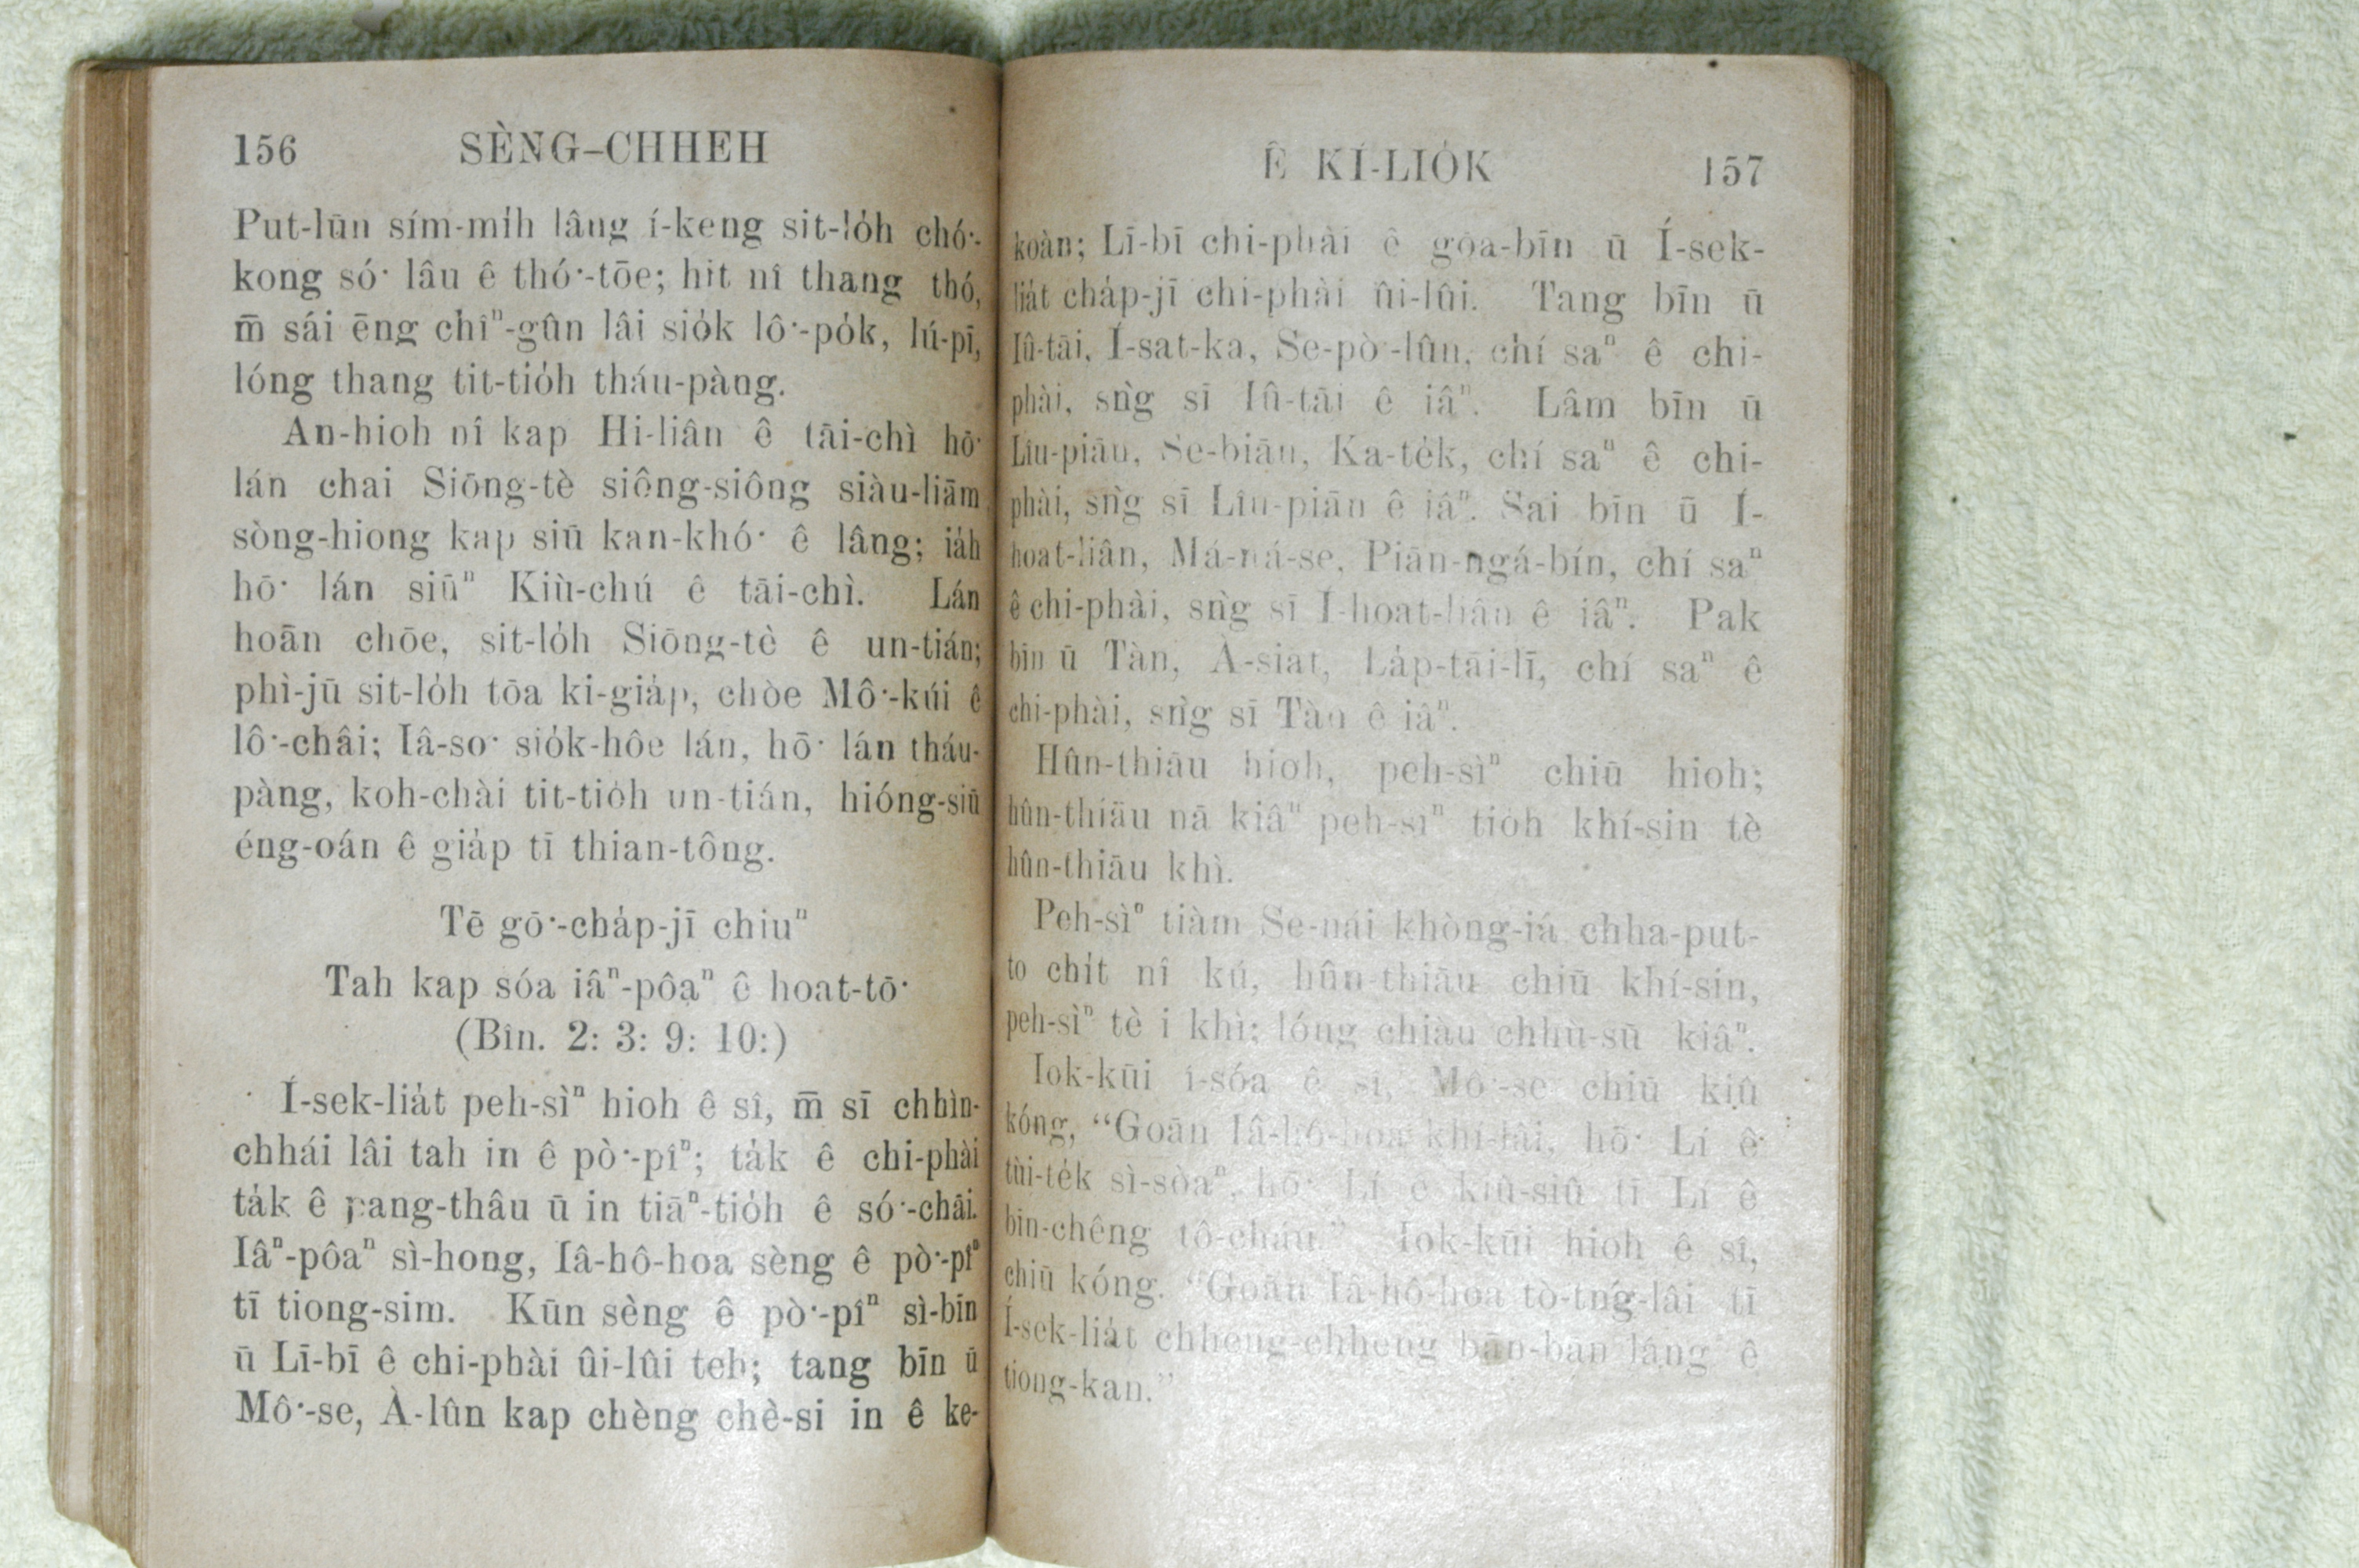 156 SÈNG-CHHEH
Put-lūn sím-mi̍h lâng í-keng sit-lo̍h chó͘-
kong só͘ lâu ê thó͘-tōe; hit nî thang thó,
m̄ sái ēng chîⁿ-gûn lâi sio̍k lô͘-po̍k, lú-pī,
lóng thang tit-tio̍h tháu-pàng.
An-hioh nî kap Hi-liân ê tāi-chì hō͘
lán chai Siōng-tè siông-siông siàu-liām
sòng-hiong kap siū kan-khó͘ ê lâng; ia̍h
hō͘ lán siūⁿ Kiù-chú ê tāi-chì. Lán
hoān chōe, sit-lo̍h Siōng-tè ê un-tián;
phì-jū sit-lo̍h tōa ki-gia̍p, chòe Mô͘-kúi ê
lô͘-châi; Iâ-so͘ sio̍k-hôe lán, hō͘ lán tháu-
pàng, koh-chài tit-tio̍h un-tián, hióng-siū
éng-oán ê gia̍p tī thian-tông.
Tē gō͘-cha̍p-jī chiuⁿ
Tah kap sóa iâⁿ-pôaⁿ ê hoat-tō͘
(Bîn. 2: 3: 9: 10:)
Í-sek-lia̍t peh-sìⁿ hioh ê sî, m̄ sī chhìn-
chhái lâi tah in ê pò͘-pîⁿ; ta̍k ê chi-phài
ta̍k ê pang-thâu ū in tiāⁿ-tio̍h ê só͘-chāi.
Iâⁿ-pôaⁿ sì-hong, Iâ-hô-hoa sèng ê pò͘-pîⁿ
tī tiong-sim. Kūn sèng ê pò͘-pîⁿ sì-bīn
ū Lī-bī ê chi-phài ûi-lûi teh; tang bīn ū
Mô͘-se, À-lûn kap chèng chè-si in ê ke-
Ê KÍ-LIO̍K 157
koàn; Lī-bī chi-phài ê gōa-bīn ū Í-sek-
lia̍t cha̍p-jī chi-phài ûi-lûi. Tang bīn ū
Iû-tāi, Í-sat-ka, Se-pò͘-lûn, chí saⁿ ê chi-
phài, sǹg sī Iû-tāi ê iâⁿ. Lâm bīn ū
Lîu-piān, Se-biān, Ka-te̍k, chí saⁿ ê chi-
phài, sǹg sī Lîu-piān ê iâⁿ. Sai bīn ū Í-
hoat-liân, Má-ná-se, Piān-ngá-bín, chí saⁿ
ê chi-phài, sǹg sī Í-hoat-liân ê iâⁿ. Pak
bīn ū Tàn, À-siat, La̍p-tāi-lī, chí saⁿ ê
chi-phài, sǹg sī Tàn ê iâⁿ.
Hûn-thiāu hioh, peh-sìⁿ chiū hioh;
hûn-thiāu nā kiâⁿ peh-sìⁿ tio̍h khí-sin tè
hûn-thiāu khì.
Peh-sìⁿ tiàm Se-nái khòng-iá chha-put-
to chi̍t nî kú, hûn-thiāu chiū khí-sin,
peh-sìⁿ tè i khì; lóng chiàu chhù-sū kiâⁿ.
Iok-kūi í-sóa ê sî, Mô͘-se chiū kiû
kóng, “Goān Iâ-hô-hoa khí-lâi, hō͘ Lí ê
tùi-te̍k sì-sòaⁿ, hō͘ Lí ê kiû-siû tī Lí ê
bīn-chêng tô-cháu.” Iok-kūi hioh ê sî,
chiū kóng. “Goān Iâ-hô-hoa tò-tńg-lâi tī
Í-sek-lia̍t chheng-chheng bān-bān lâng ê
tiong-kan.”